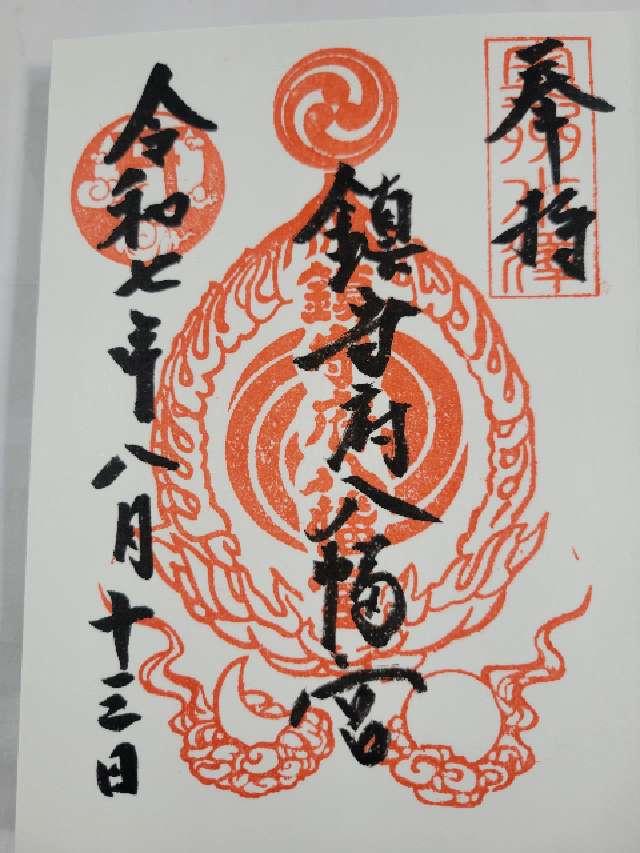 奉拝
鎮守府八幡宮
令和七年八月十三日
鎮守府八幡宮